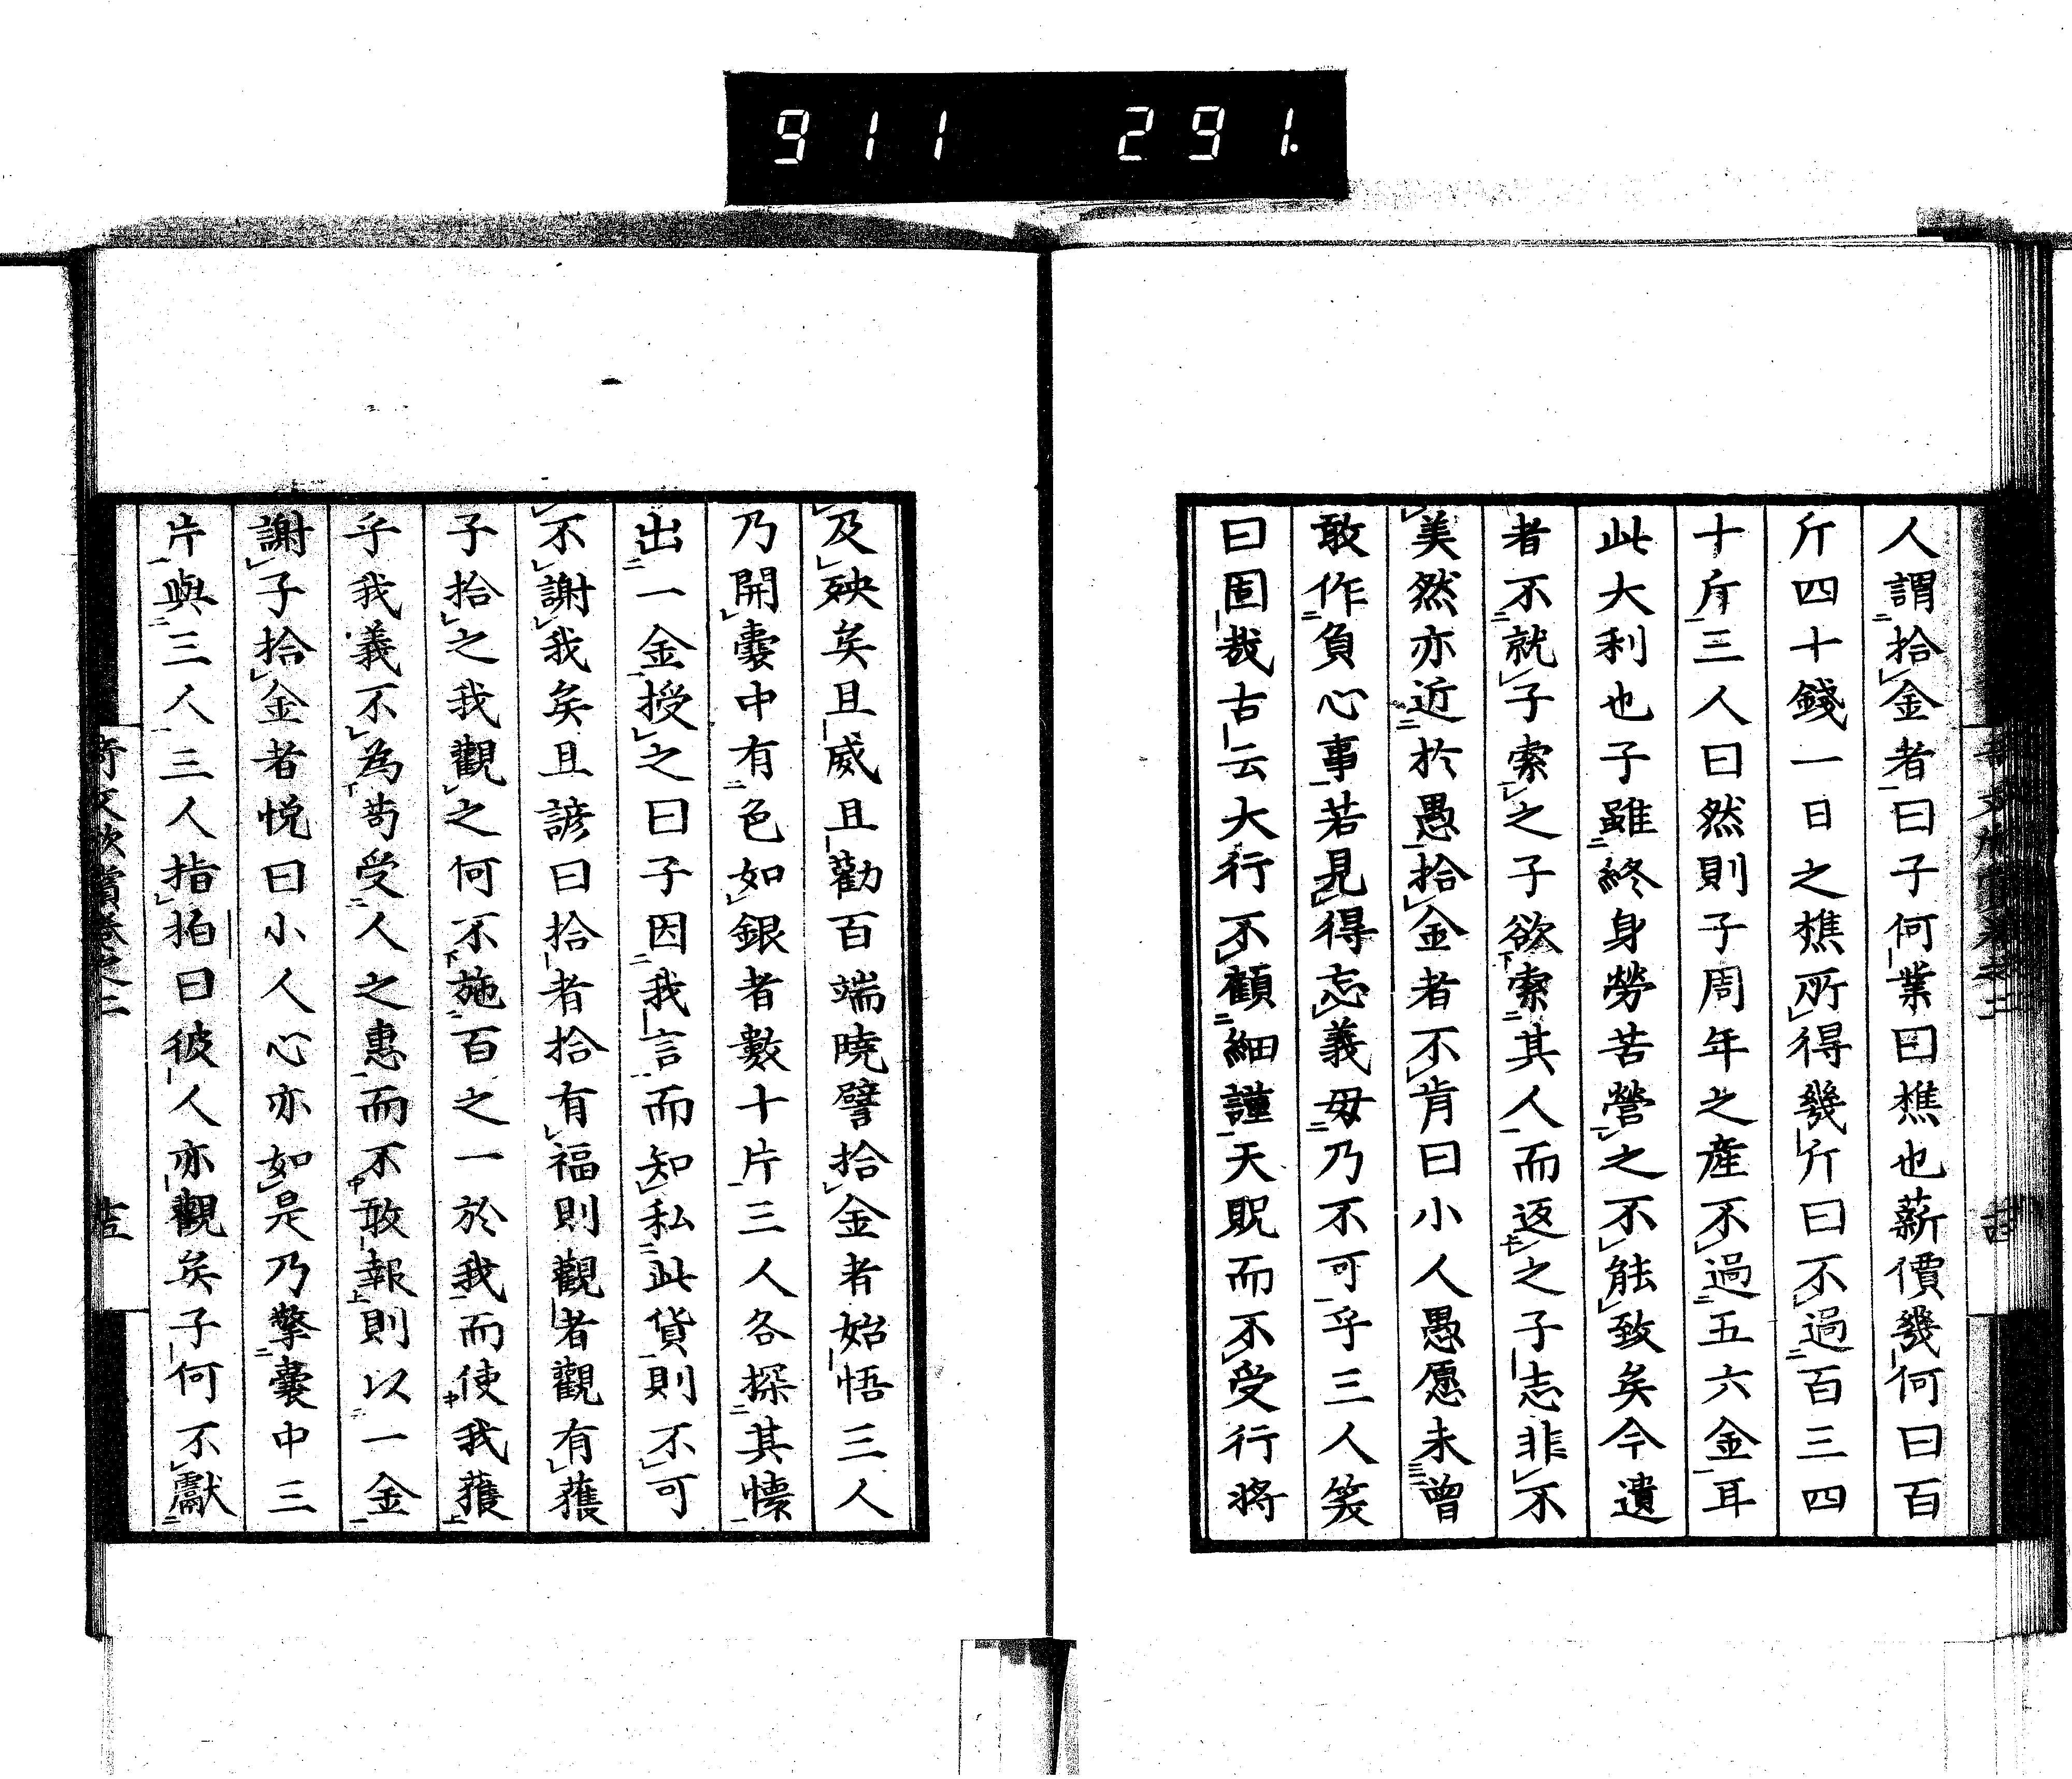 911 291.
人謂拾金者曰子何業曰樵也薪價幾何曰百
斤四十錢一日之樵所得幾斤曰不過百三四
十斤三人曰然則子周年之產不過五六金耳
此大利也子雖終身勞苦營之不能致矣今遺
者不就子索之子欲索其人而返之子志非不
美然亦近於愚拾金者不肯曰小人愚愿未曾
敢作負心事若見得忘義毋乃不可乎三人笑
曰固哉古云大行不顧細謹天貺而不受行將
及殃矣且威且勸百端曉譬拾金者始悟三人
乃開囊中有色如銀者數十片三人各探其懷
出一金授之曰子因我言而知私此貨則不可
不謝我矣且諺曰拾者拾有福則觀者觀有獲
子拾之我觀之何不施百之一於我而使我獲
乎我義不為苟受人之惠而不敢報則以一金
謝子拾金者悅曰小人心亦如是乃擎囊中三
片與三人三人指拍曰彼人亦觀矣子何不獻
奇文欣賞卷之二